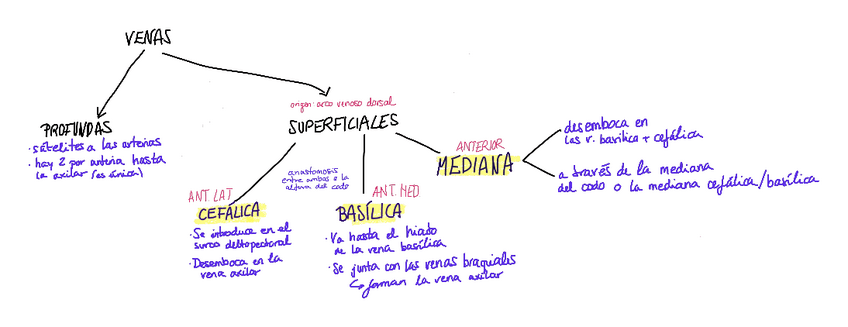 VENAS
PROFUNDAS
· satélites a las arterias
· hay 2 por arteria hasta
la axilar (es única)
origen: arco venoso dorsal
SUPERFICIALES
anastomosis
entre ambas a la
altura del codo
ANT. LAT
CEFÁLICA
· Se introduce en el
surco deltopectoral
· Desemboca en la
vena axilar
ANT. MED.
BASÍLICA
· Va hasta el hiado
de la vena basílica
· Se junta con las venas braquiales
↳ forman la vena axilar
ANTERIOR
MEDIANA
desemboca en
las v. basílica + cefálica
a través de la mediana
del codo o la mediana cefálica/basílica